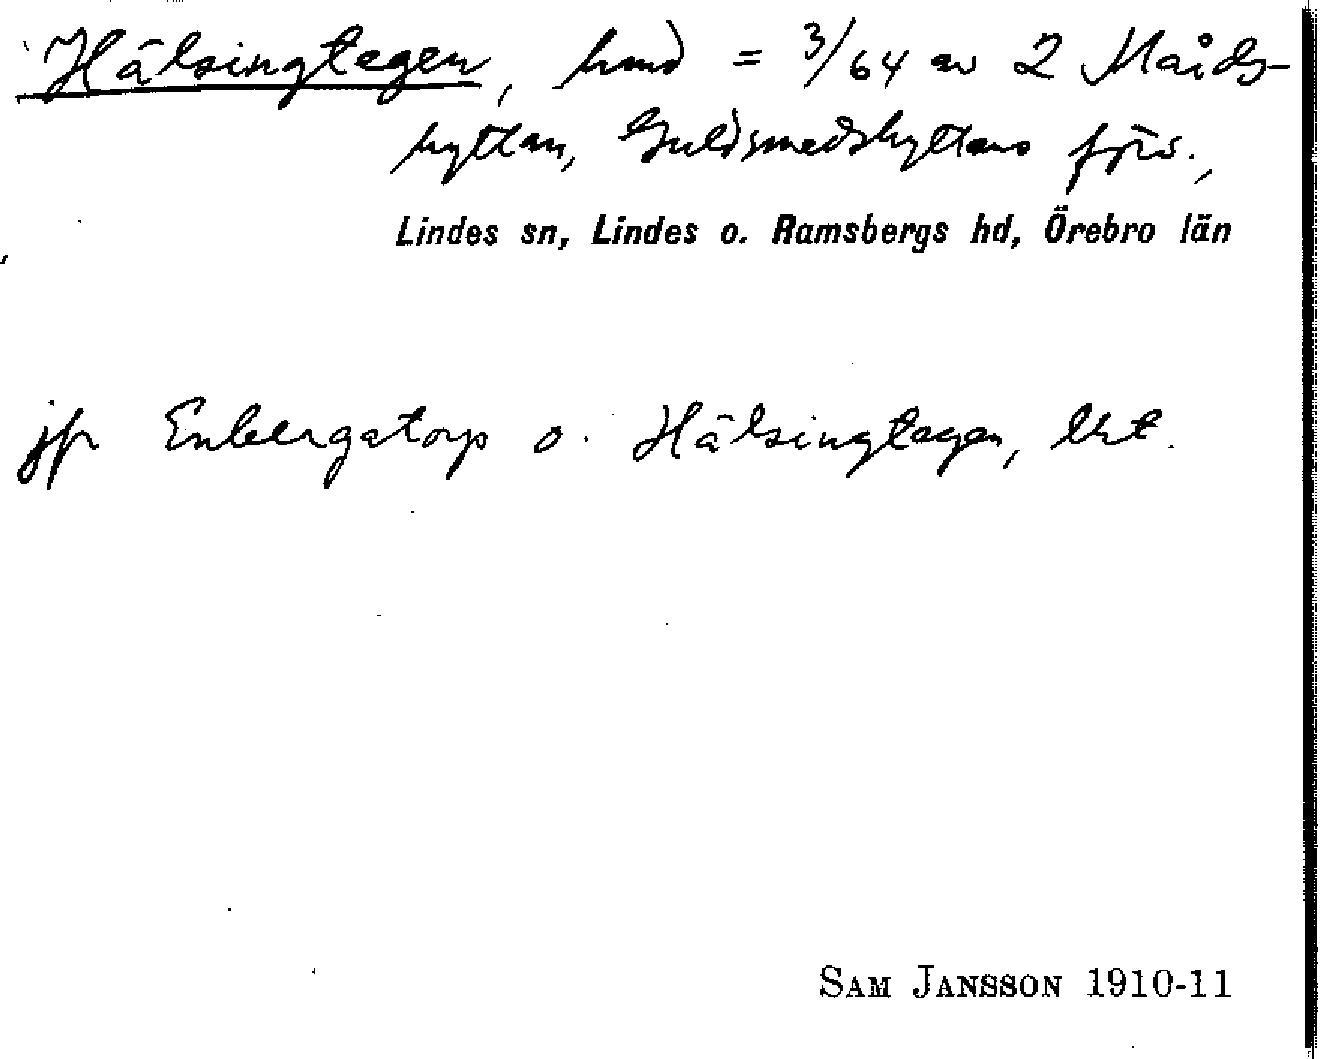 Hälsingtegen, hmd = 3/64 av 2 Mårds-
hyttan, Guldsmedshyttans förs.,
Lindes sn, Lindes o. Ramsbergs hd, Örebro län
jfr Enbergatorp o. Hälsingtegen, lht.
SAM JANSSON 1910-11